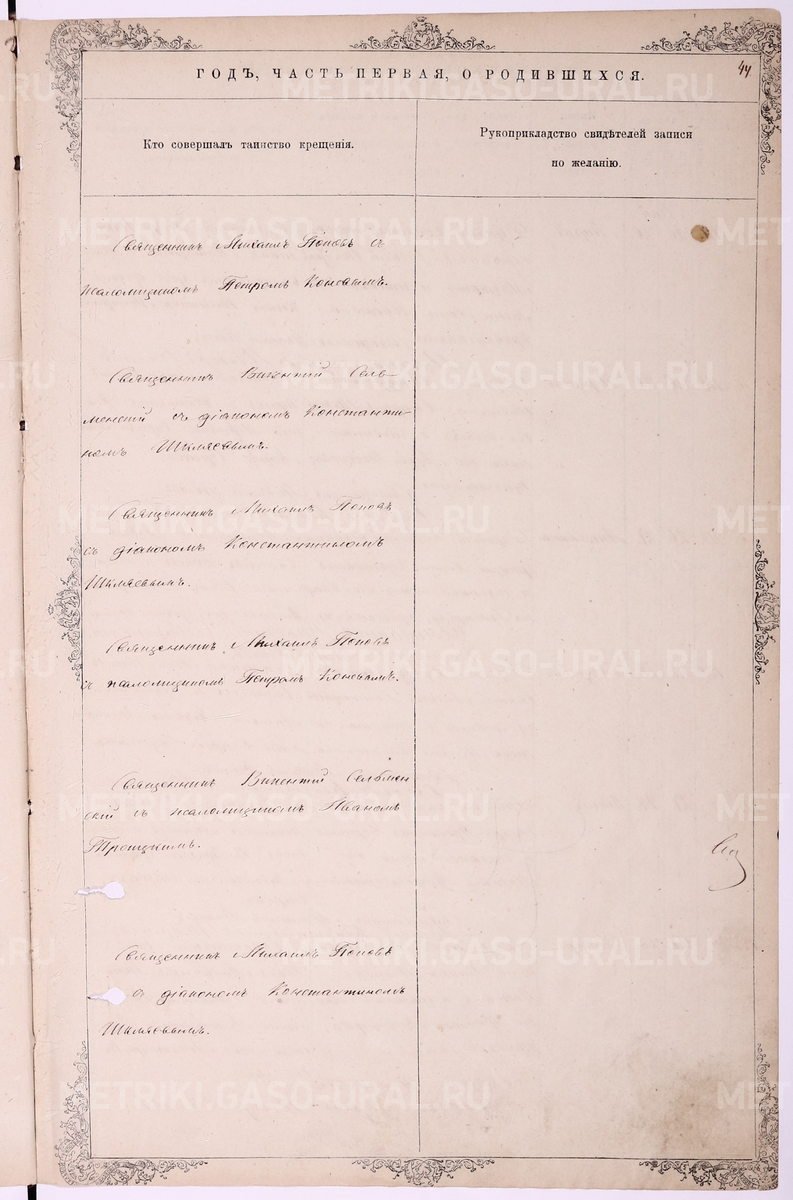 44
ГОДЪ, ЧАСТЬ ПЕРВАЯ, О РОДИВШИХСЯ.
Кто совершалъ таинство крещенія.
Рукоприкладство свидѣтелей записи
по желанію.
Священникъ Михаилъ Поповъ съ
псаломщикомъ Петромъ Коневымъ.
Священникъ Викентій Сель-
менскій съ діакономъ Константи-
номъ Шкляевымъ.
Священникъ Михаилъ Поповъ
съ діакономъ Константиномъ
Шкляевымъ.
Священникъ Михаилъ Поповъ
съ псаломщикомъ Петромъ Коневымъ.
Священникъ Викентій Сельмен
скій съ псаломщикомъ Иваномъ
Троицкимъ.
Священникъ Михаилъ Поповъ
съ діакономъ Константиномъ
Шкляевымъ.
METRIKI.GASO-URAL.RU